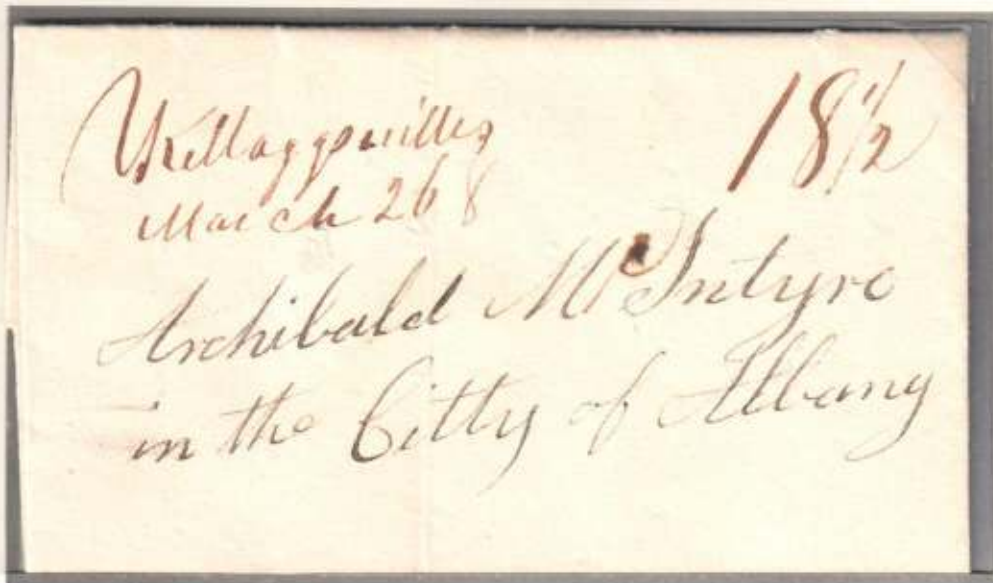 Kelloggsville
March 26 18 1/2
Archibald McIntyre
in the Citty of Albany